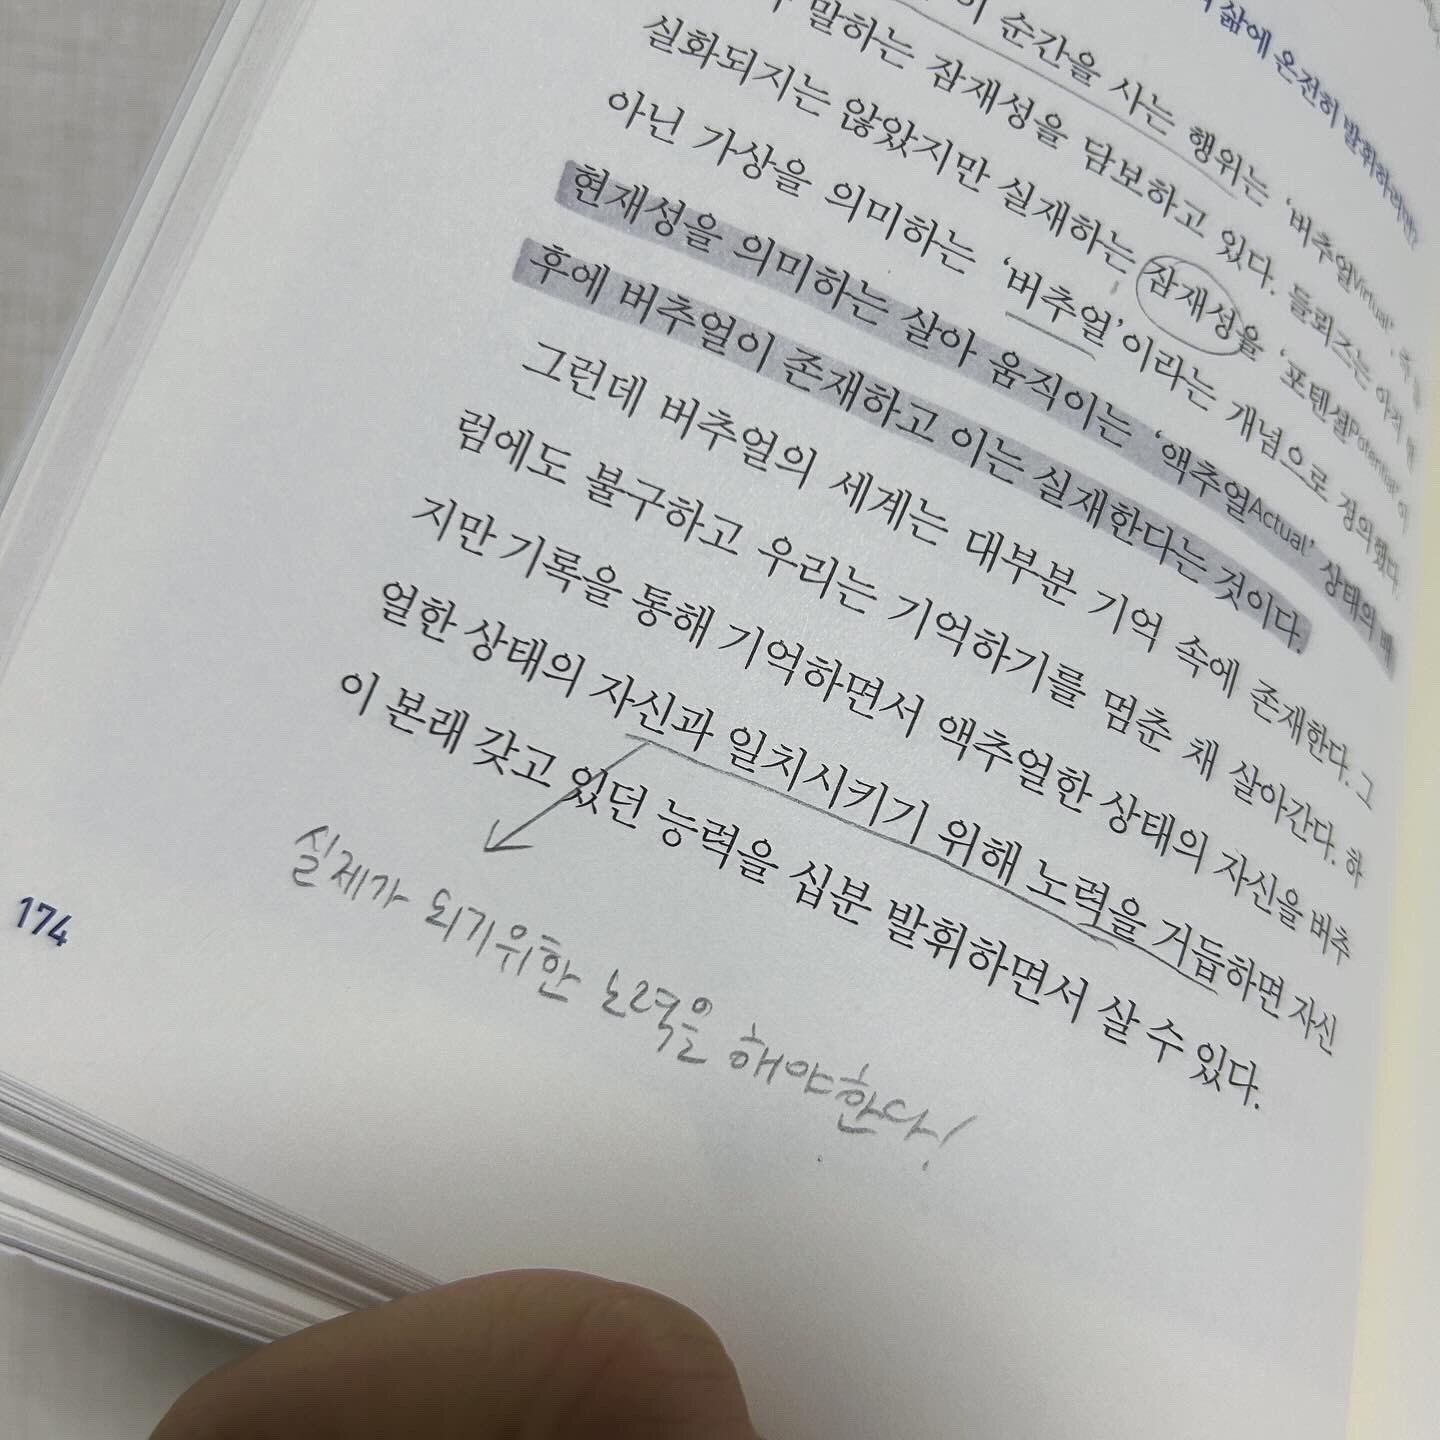 삶에 온전히 발휘하려면?
순간을 사는 행위는 '버추얼Virtual',
말하는 잠재성을 담보하고 있다. 들뢰즈는 아직
실화되지는 않았지만 실재하는 잠재성을 '포텐셜Potential'이
아닌 가상을 의미하는 '버추얼'이라는 개념으로 정의했다.
현재성을 의미하는 살아 움직이는 '액추얼Actual' 상태의 배
후에 버추얼이 존재하고 이는 실재한다는 것이다.
그런데 버추얼의 세계는 대부분 기억 속에 존재한다. 그
럼에도 불구하고 우리는 기억하기를 멈춘 채 살아간다. 하
지만 기록을 통해 기억하면서 액추얼한 상태의 자신을 버추
얼한 상태의 자신과 일치시키기 위해 노력을 거듭하면 자신
이 본래 갖고 있던 능력을 십분 발휘하면서 살 수 있다.
실제가 되기위한 노력을 해야한다!
174